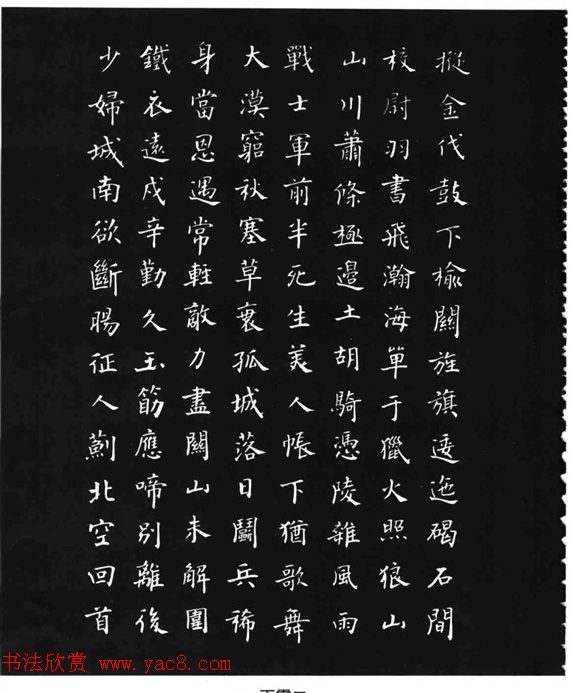 摐金伐鼓下榆關旌旗逶迤碣石間
校尉羽書飛瀚海單于獵火照狼山
山川蕭條極邊土胡騎憑陵雜風雨
戰士軍前半死生美人帳下猶歌舞
大漠窮秋塞草衰孤城落日鬭兵稀
身當恩遇常輕敵力盡關山未解圍
鐵衣遠戍辛勤久玉筯應啼別離後
少婦城南欲斷腸征人薊北空回首
书法欣赏 www.yac8.com